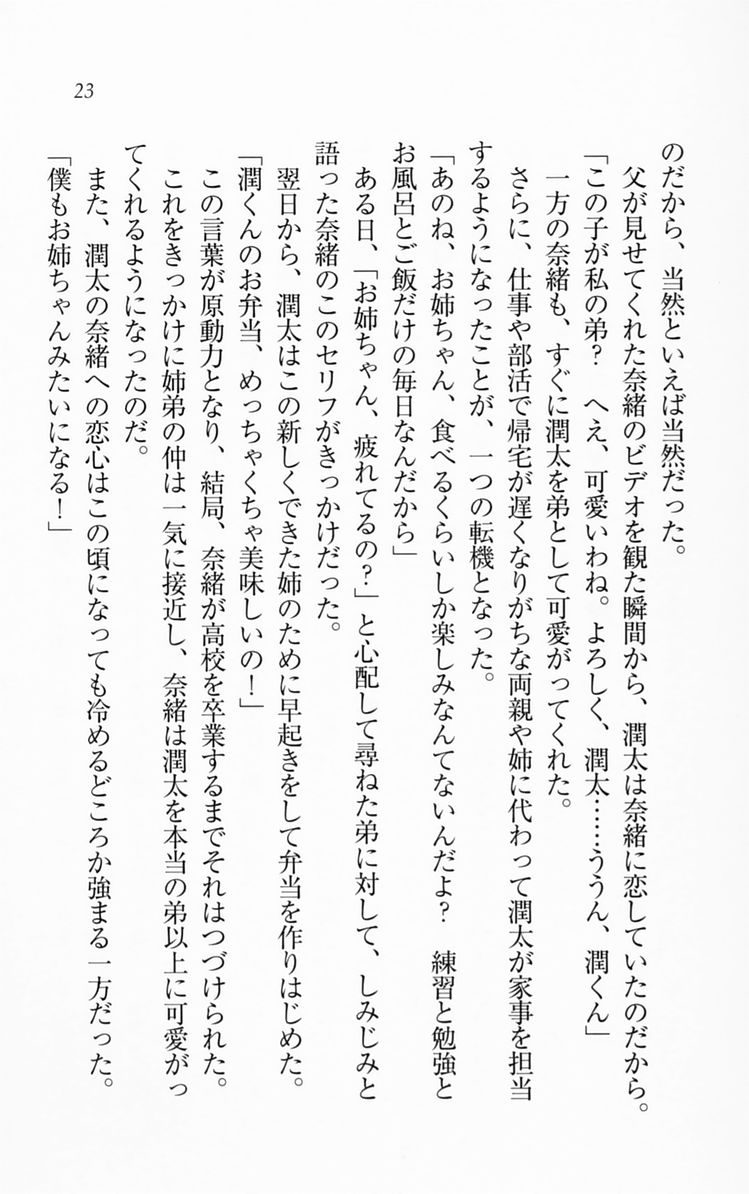 23
のだから、当然といえば当然だった。
父が見せてくれた奈緒のビデオを観た瞬間から、潤太は奈緒に恋していたのだから。
「この子が私の弟？　へえ、可愛いわね。よろしく、潤太……ううん、潤くん」
一方の奈緒も、すぐに潤太を弟として可愛がってくれた。
さらに、仕事や部活で帰宅が遅くなりがちな両親や姉に代わって潤太が家事を担当
するようになったことが、一つの転機となった。
「あのね、お姉ちゃん、食べるくらいしか楽しみなんてないんだよ？　練習と勉強と
お風呂とご飯だけの毎日なんだから」
ある日、「お姉ちゃん、疲れてるの？」と心配して尋ねた弟に対して、しみじみと
語った奈緒のこのセリフがきっかけだった。
翌日から、潤太はこの新しくできた姉のために早起きをして弁当を作りはじめた。
「潤くんのお弁当、めっちゃくちゃ美味しいの！」
この言葉が原動力となり、結局、奈緒が高校を卒業するまでそれはつづけられた。
これをきっかけに姉弟の仲は一気に接近し、奈緒は潤太を本当の弟以上に可愛がっ
てくれるようになったのだ。
また、潤太の奈緒への恋心はこの頃になっても冷めるどころか強まる一方だった。
「僕もお姉ちゃんみたいになる！」